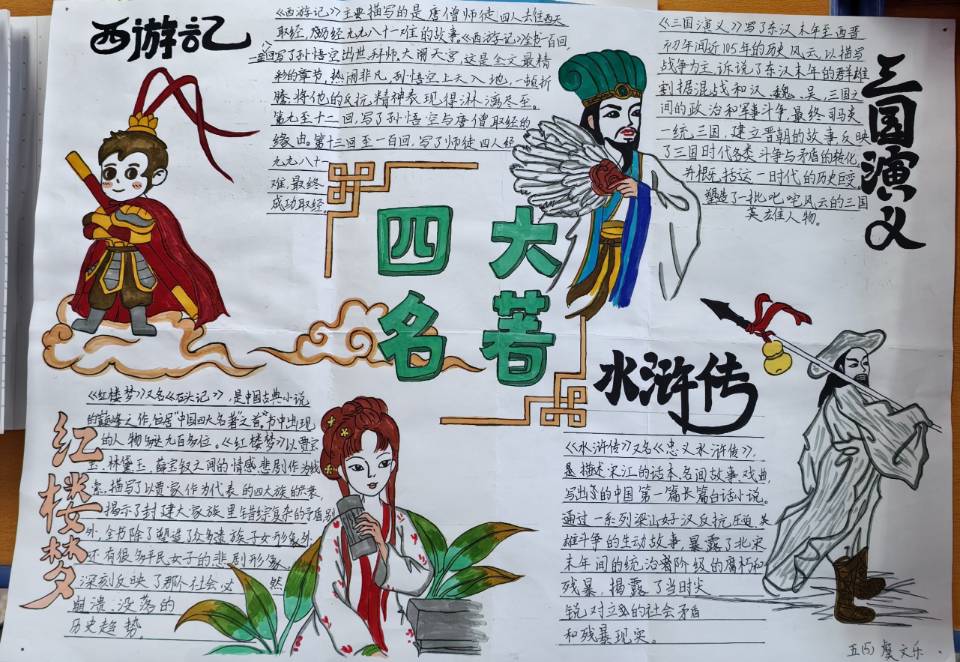 西游记
《西游记》主要描写的是唐僧师徒四人去往西天
取经,历经九九八十一难的故事。《西游记》全书一百回,
写了孙悟空出世拜师,大闹天宫,这是全文最精
彩的章节,热闹非凡,孙悟空上天入地,一顿折
腾,将他的反抗精神表现得淋漓尽至。
第九至十二回,写了孙悟空与唐僧取经的
缘由。第十三回至一百回,写了师徒四人经
九九八十一
难,最终
成功取经
《三国演义》写了东汉末年至西晋
初年间近105年的历史风云,以描写
战争为主,诉说了东汉末年的群雄
割据混战和汉、魏、吴三国之
间的政治和军事斗争,最终司马炎
一统三国,建立晋朝的故事反映
了三国时代各类斗争与矛盾的转化,
并概括这一时代的历史巨变,
塑造了一批叱咤风云的三国
英雄人物。
三国演义
四大
名著
《红楼梦》又名《石头记》,是中国古典小说
的巅峰之作,位居"中国四大名著"之首。书中出现
的人物多达九百多位。《红楼梦》以贾宝
玉、林黛玉、薛宝钗之间的情感悲剧作为线
索,描写了以贾家作为代表的四大族的兴衰,
揭示了封建大家族里错综复杂的矛盾,
外,全书除了塑造了众多贵族子女形象外,
还有很多平民女子的悲剧形象,
深刻反映了那个社会必然
崩溃、没落的
历史趋势。
红楼梦
水浒传
《水浒传》又名《忠义水浒传》,
是描述宋江的话本、名间故事、戏曲,
写出的中国第一篇长篇白话小说。
通过一系列梁山好汉反抗压迫、英
雄斗争的生动故事,暴露了北宋
末年间的统治者阶级的腐朽和
残暴,揭露了当时尖
锐对立的社会矛盾
和残暴现实。
五(5) 虞文乐